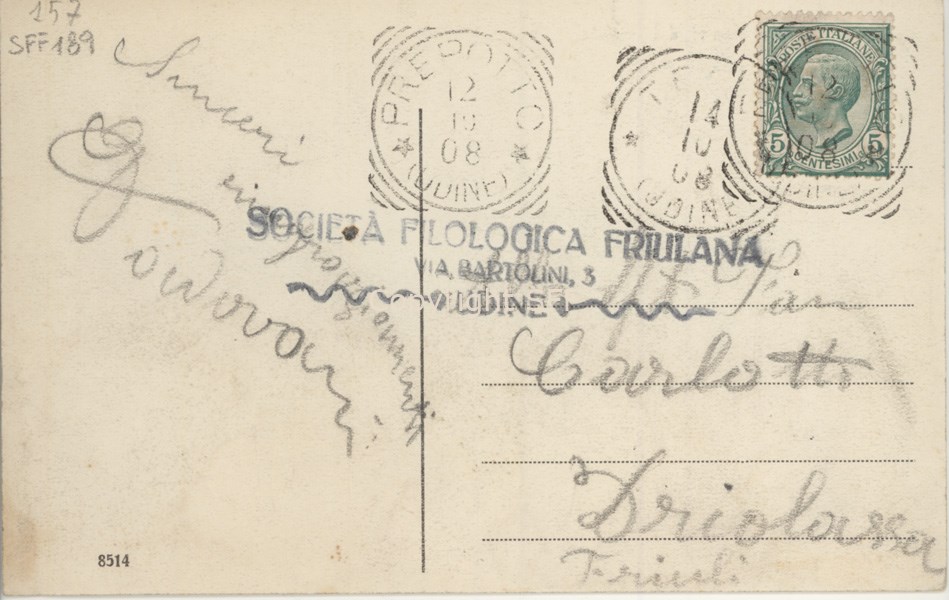 157
SFF189
PREPOTTO
12
10
08
(UDINE)
14
10
08
(UDINE)
POSTE ITALIANE
5 CENTESIMI 5
Sinceri
ringraziamenti
SOCIETÀ FILOLOGICA FRIULANA
VIA BARTOLINI, 3
UDINE
Carlotti
Driolassa
Friuli
8514